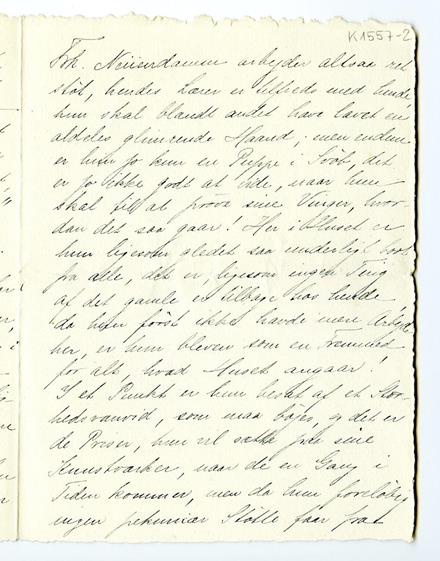 K1557-2
Frk. Neiiendamm arbejder altsaa ret
støt, hendes Lærer er tilfreds med hende,
hun skal blandt andet have lavet en
aldeles glimrende Haand; men endnu
er hun jo kun en Puppe i Svøb, det
er jo ikke godt at vide, naar hun
skal til at prøve sine Vinger, hvor-
dan det saa gaar! Her i Huset er
hun ligesom gledet saa underligt bort
fra alle, det er, ligesom ingen Ting
af det gamle er tilbage hos hende
da hun først ikke havde mere Arbejde
her, er hun bleven som en Fremmed
for alt, hvad Huset angaar!
I et Punkt er hun besat af et Stor-
hedsvanvid, som maa bøjes, og det er
de Priser, hun vil sætte paa sine
Kunstværker, naar de en Gang i
Tiden kommer, men da hun foreløbig
ingen pekuniær Støtte faar fra